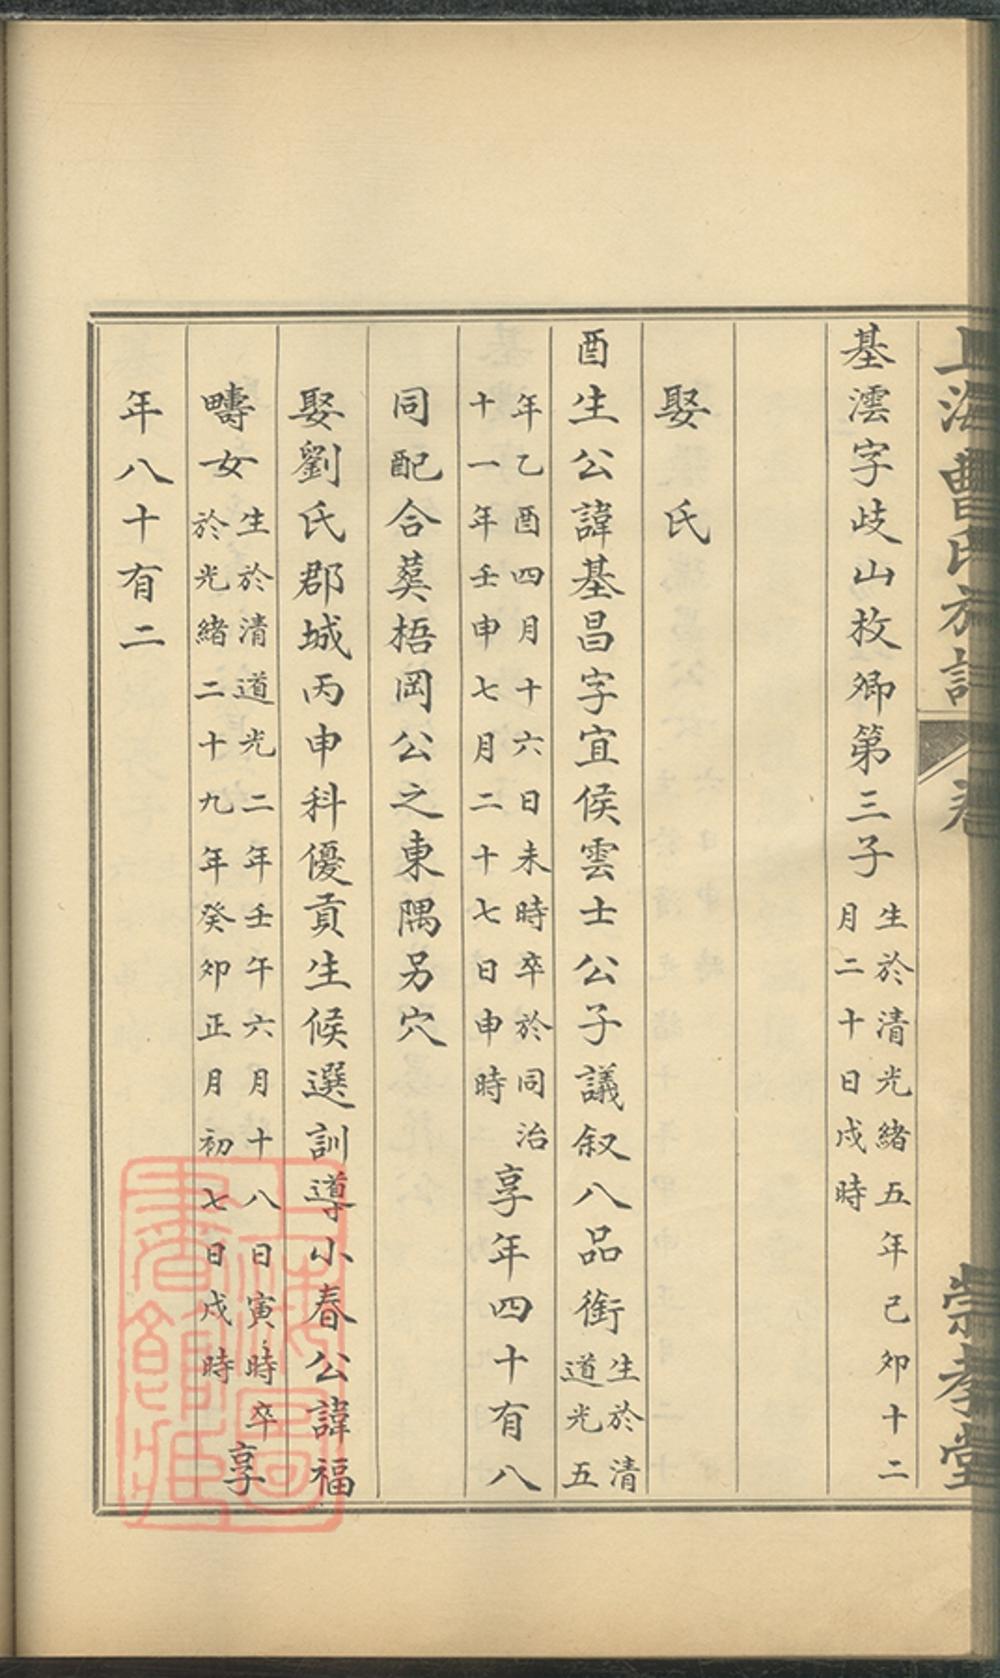 上海曹氏族譜 卷
崇孝堂
基澐字歧山枚卿第三子 生於清光緒五年己卯十二
月二十日戌時
娶 氏
酉生公諱基昌字宜侯雲士公子議叙八品銜 生於清
道光五
年乙酉四月十六日未時卒於同治
十一年壬申七月二十七日申時 享年四十有八
同配合葬梧岡公之東隅另穴
娶劉氏郡城丙申科優貢生候選訓導小春公諱福
疇女 生於清道光二年壬午六月十八日寅時卒
於光緒二十九年癸卯正月初七日戌時 享
年八十有二
上海圖書館藏